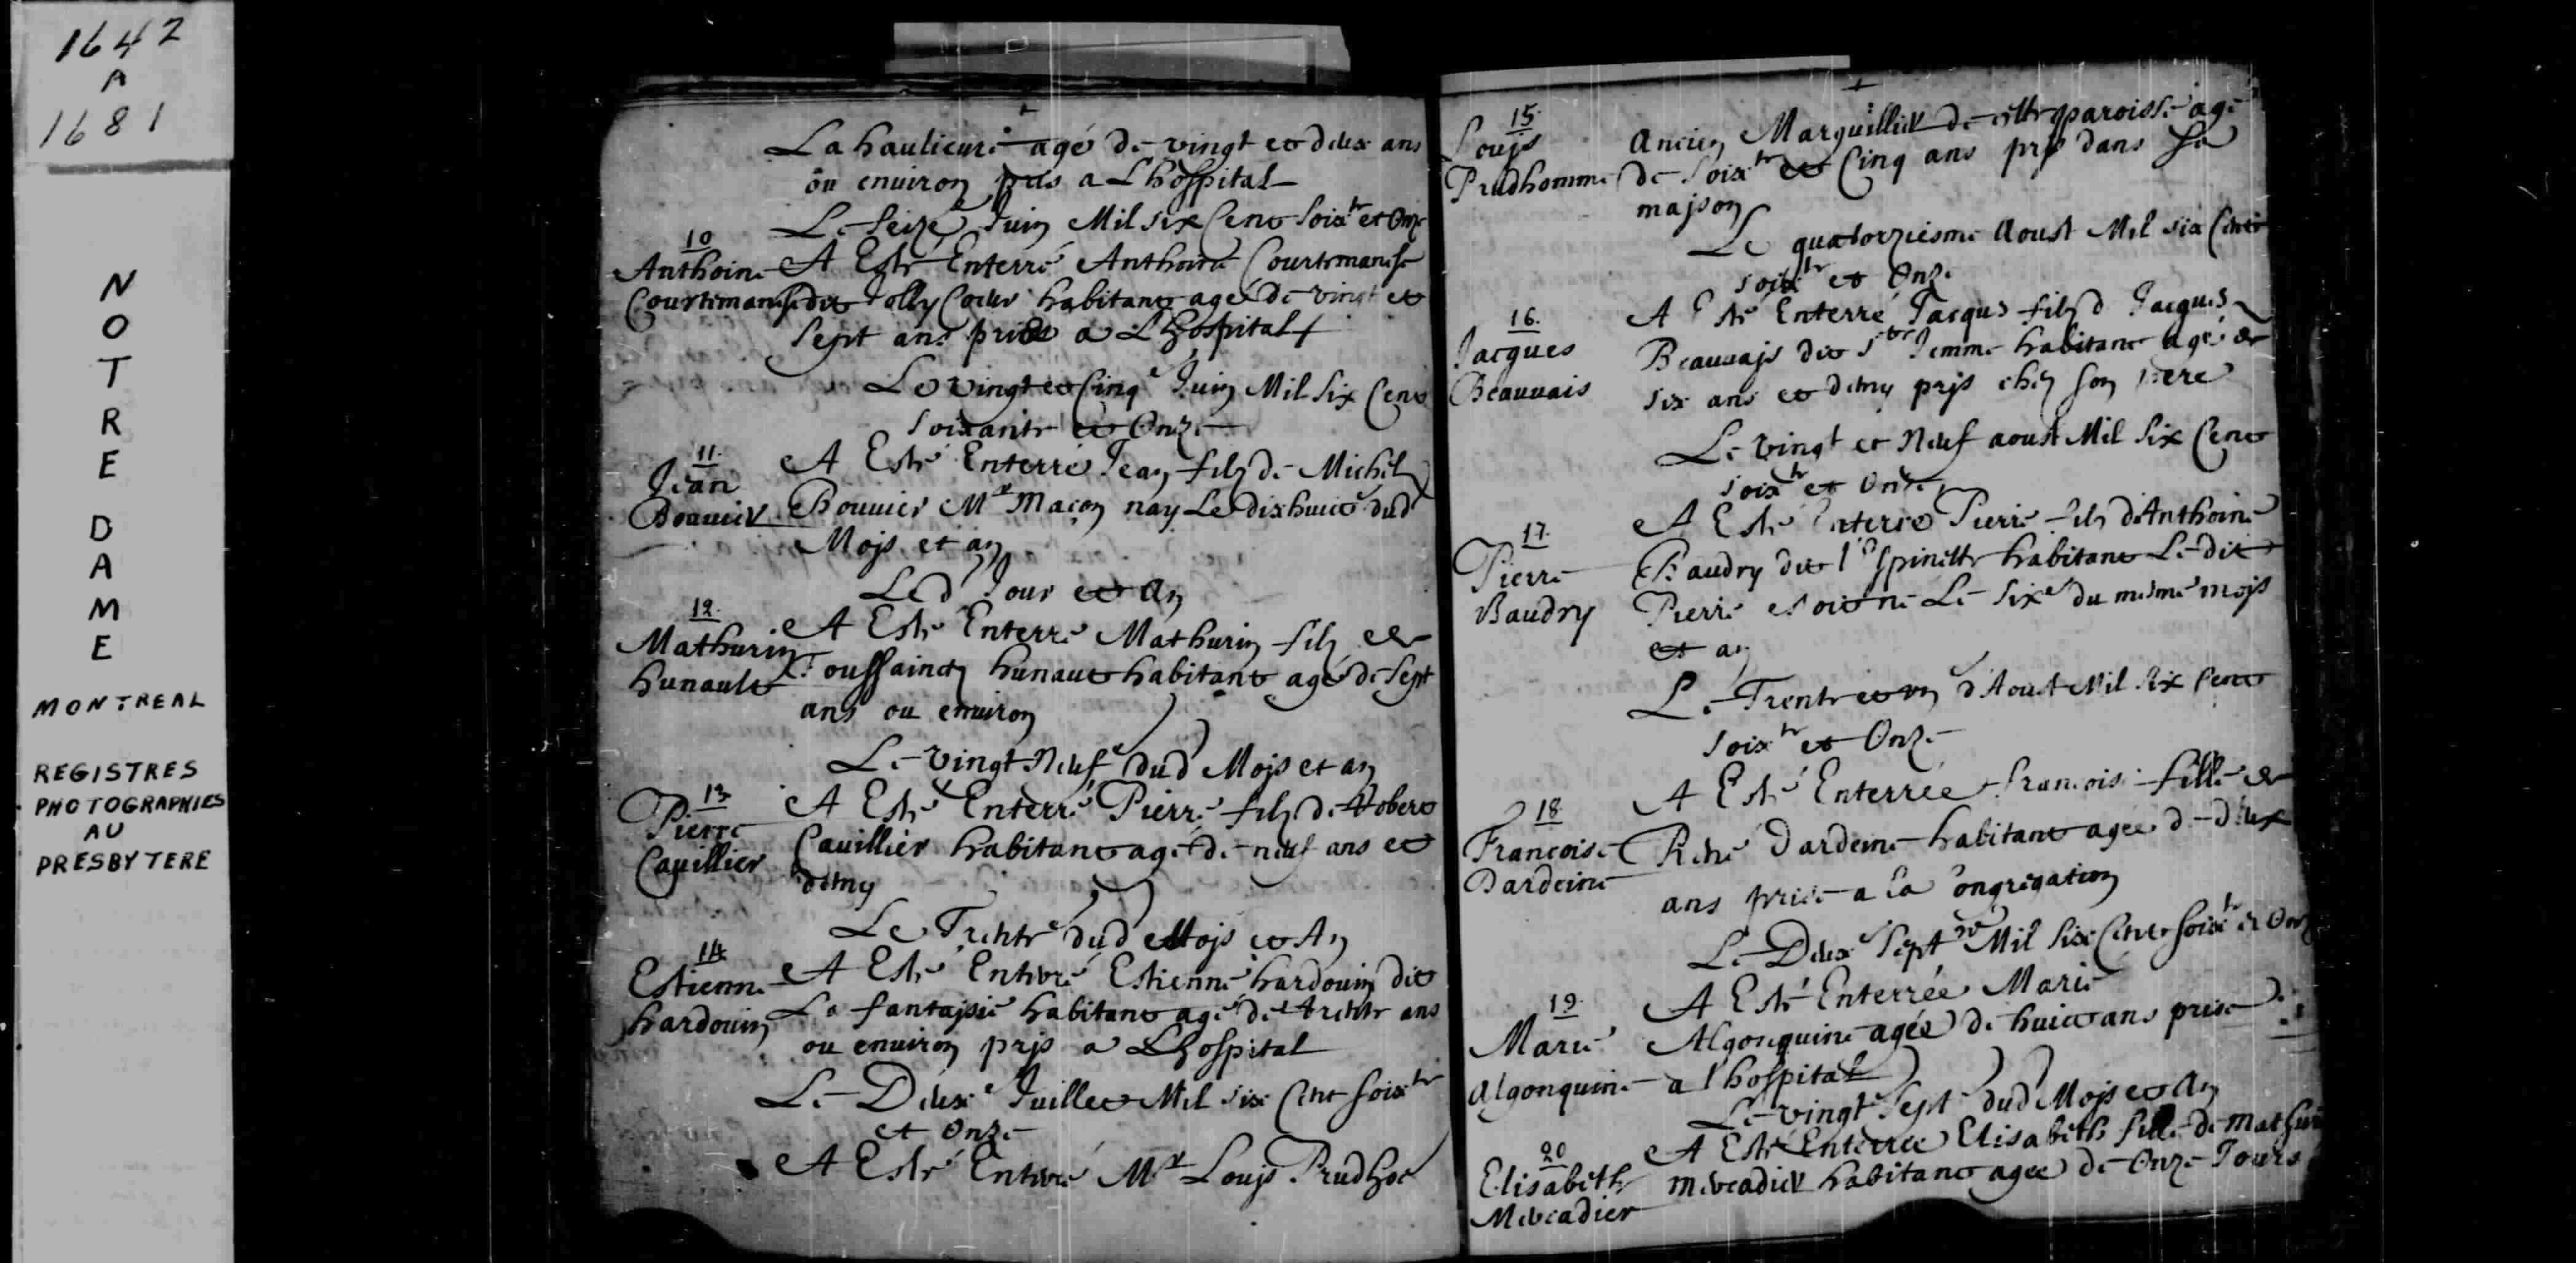 1642
A
1681
NOTRE DAME
MONTREAL
REGISTRES
PHOTOGRAPHIES
AU
PRESBYTERE
La haulieure agé de vingt et deux ans
ou environ pris a L'hospital
Le seize Juin Mil six Cens soixte et Onze
10
Anthoine
Courtemanche
A Esté Enterré Anthoine Courtemanche
dit Jolly Coeur habitant agé de vingt et
sept ans pris a L'hospital
Le vingt et Cinqe Juin Mil Six Cens
soixante et Onze
11.
Jean
Bouvier
A Esté Enterré Jean fils de Michel
Bouvier Mre Maçon nay Le dixhuict dud
Mojs et an
Led Jour et An
12.
Mathurin
hunault
A Esté Enterré Mathurin fils de
Toussainct hunaut habitant agé de Sept
ans ou environ
Le vingt Neufe dud Mojs et an
13
Pierre
Cavillier
A Esté Enterré Pierre fils de Robert
Cavillier habitant agé de neuf ans et
demy
Le Trente dud Mojs et An
14.
Estienne
hardouin
A Esté Enterré Estienne hardouin dit
La fantajsie habitant agé de trente ans
ou environ prjs a L'hospital
Le Deuxe Juillet Mil six Cent soixte
et Onze
A Esté Enterré Mre Loujs Prudhoe
15.
Loujs
Prudhomme
Ancien Marguillier de cette paroisse agé
de soixte et Cinq ans prjs dans sa
majson
Le quatorziesme Aoust Mil six Cents
soixte et Onze
16.
Jacques
Beauvais
A Esté Enterré Jacques fils d Jacques
Beauvajs dit Ste Jemme habitant agé de
six ans et demy prjs chez son pere
Le vingt et Neuf aoust Mil Six Cens
soixte et Onze
17.
Pierre
Baudry
A Esté Enterré Pierre fils d'Anthoine
Baudry dit l'Espinette habitant Le dit
Pierre estoit né Le sixe du mesme mojs
et an
Le Trente et un d'Aoust Mil Six Cens
soixte et Onze
18
Francoise
Dardeine
A Esté Enterrée francoise fille de
René Dardeine habitant agée de deux
ans prise a La Congregation
Le Deuxe Septbre Mil Six Cent soixte et Onze
19.
Marie
Algonquine
A Esté Enterrée Marie
Algonquine agée de huict ans prise
a l'hospital
Le vingt Sept dud Mojs et An
20
Elisabeth
Mercadier
A Esté Enterrée Elisabeth fille de Mathurin
Mercadier habitant agée de Onze Jours